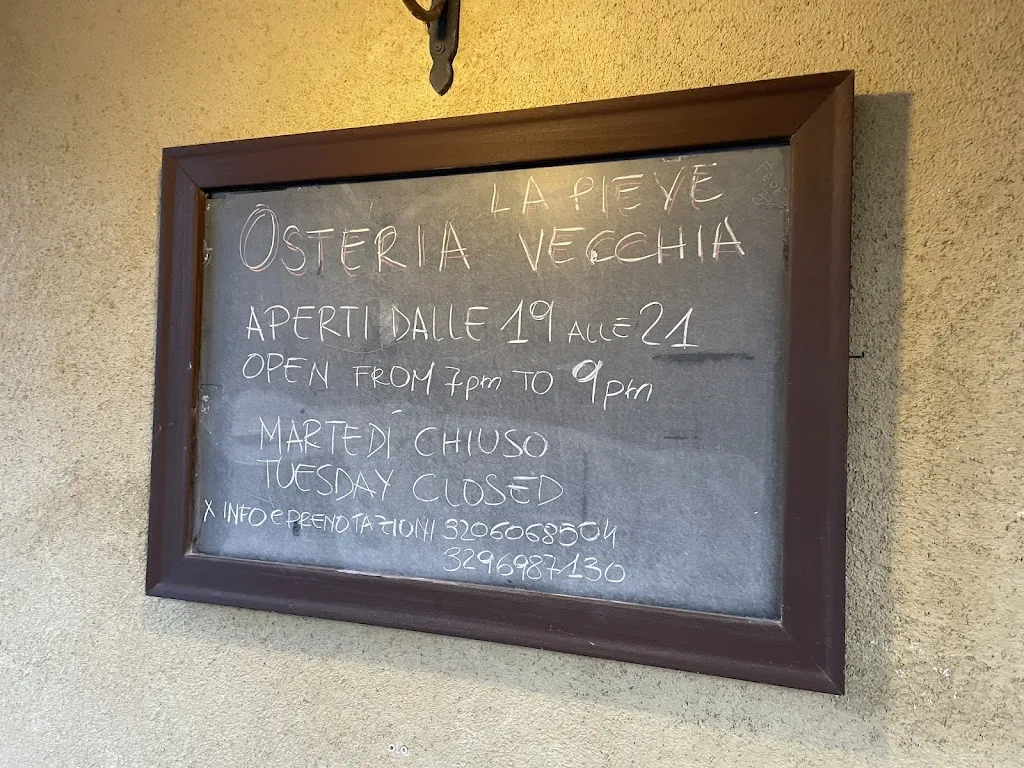 LA PIEVE
OSTERIA VECCHIA
APERTI DALLE 19 ALLE 21
OPEN FROM 7pm TO 9pm
MARTEDÌ CHIUSO
TUESDAY CLOSED
X INFO e PRENOTAZIONI 3206068504
3296987130